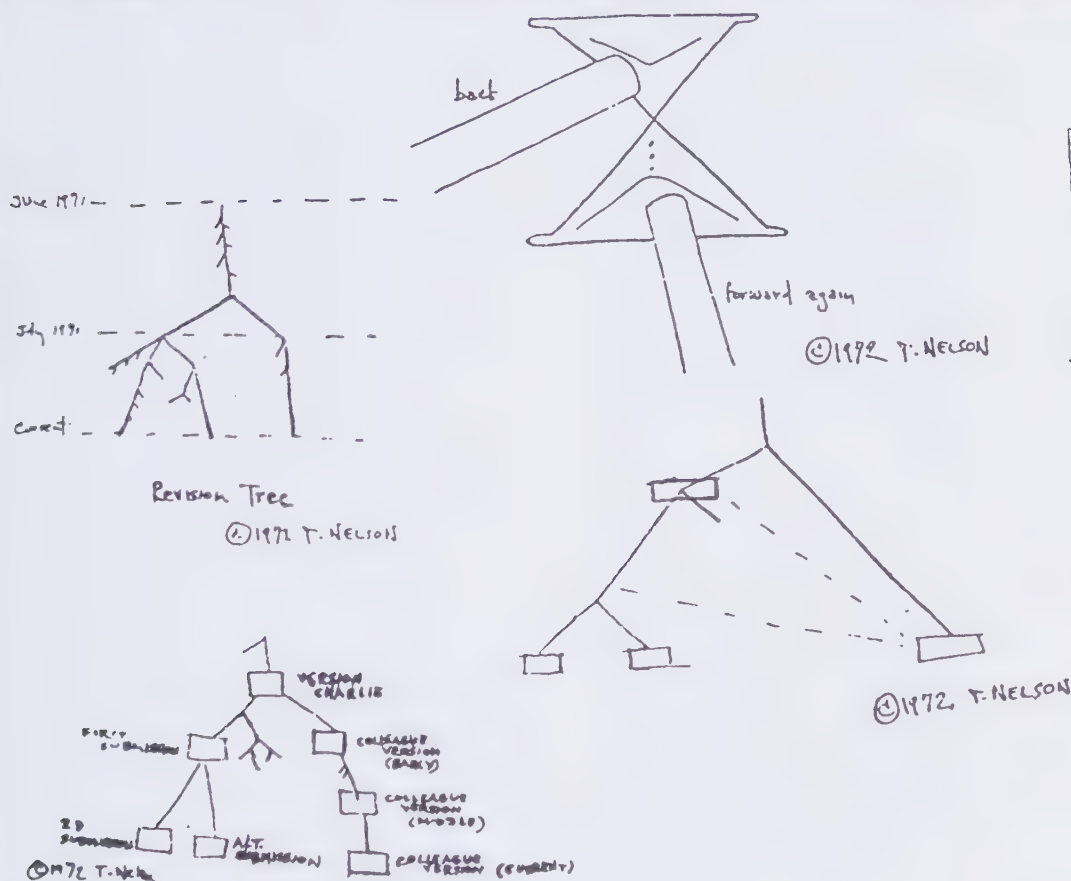 back
forward again
©1972 T. NELSON
June 1971
July 1971
Current
Revision Tree
©1972 T. NELSON
©1972 T. NELSON
VERSION
CHARLIE
FIRST
SUBMISSION
COLLEAGUE
VERSION
(EARLY)
COLLEAGUE
VERSION
(MIDDLE)
2D
SUBMISSION
ALT.
SUBMISSION
COLLEAGUE
VERSION (CURRENT)
©1972 T. Nelson